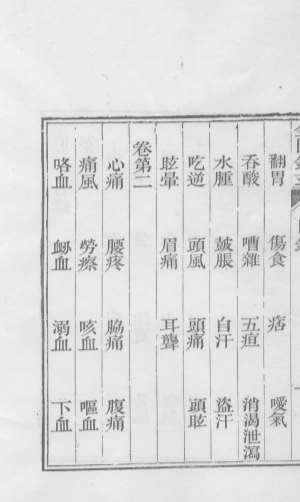 翻胃 傷食 痞 噯氣
吞酸 嘈雜 五疸 消渴泄瀉
水腫 鼓脹 自汗 盜汗
吃逆 頭風 頭痛 頭眩
眩暈 眉痛 耳聾
卷第二
心痛 腰疼 脇痛 腹痛
痛風 勞瘵 咳血 嘔血
咯血 衄血 溺血 下血